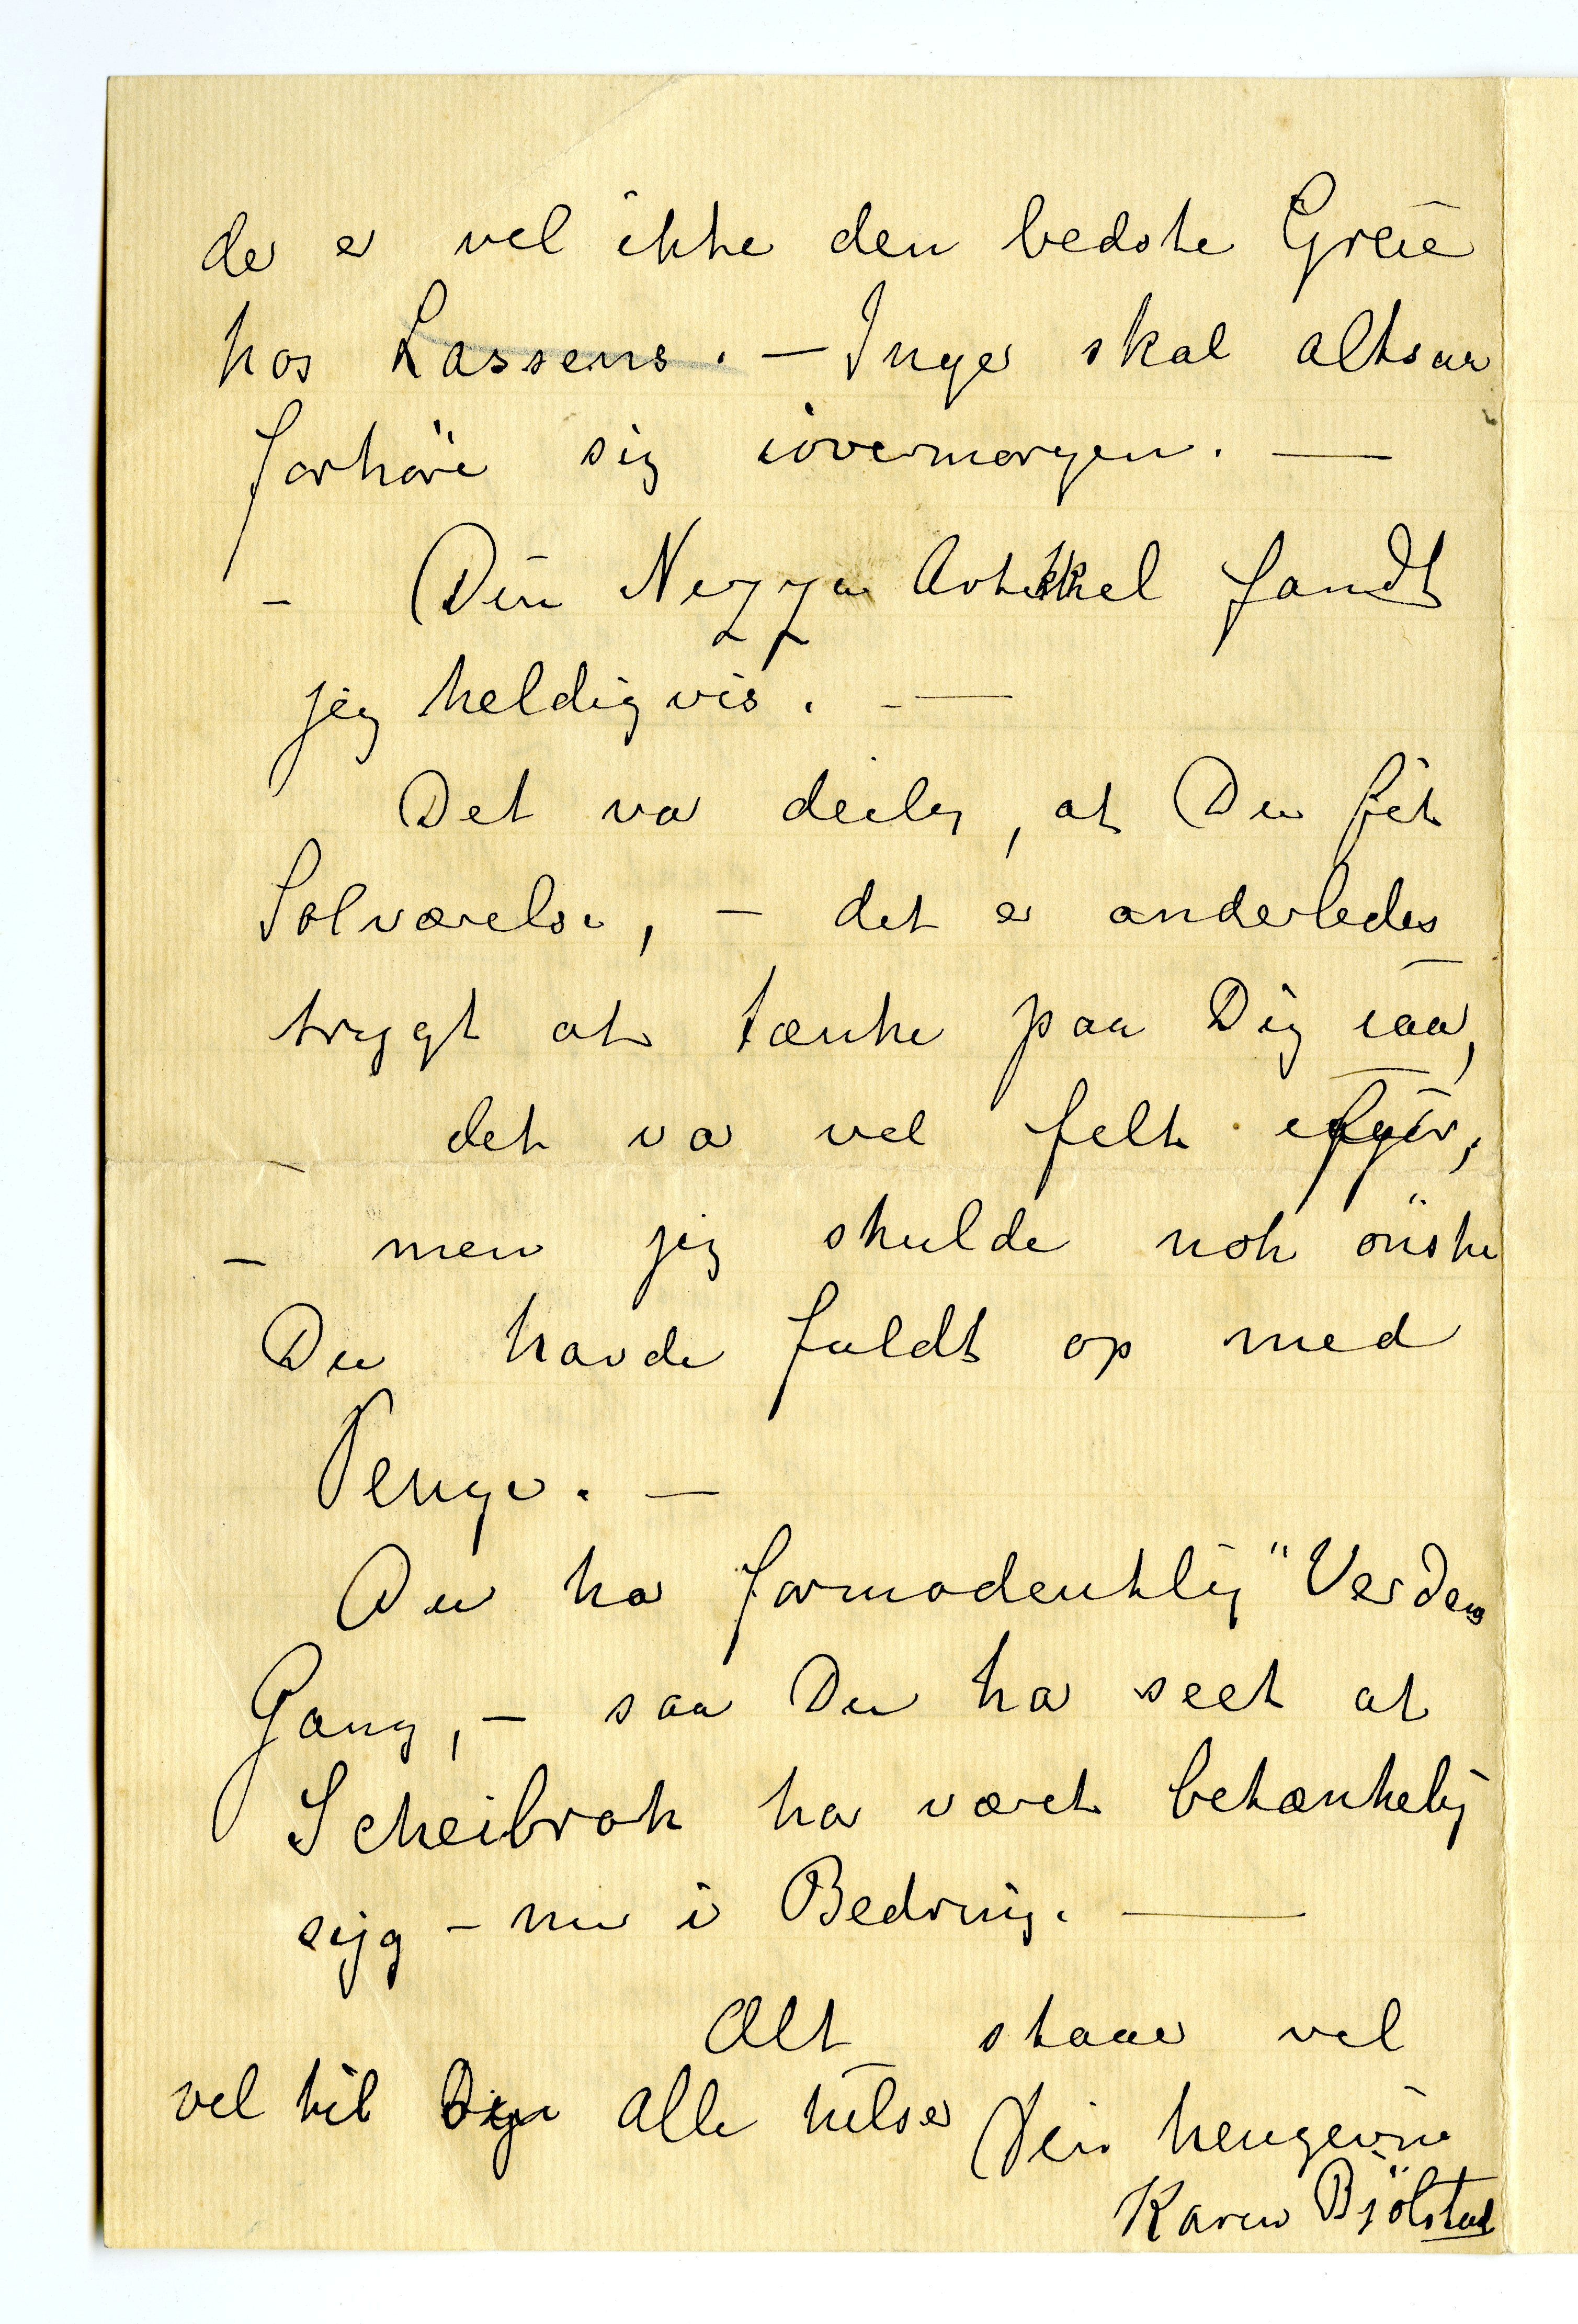 der er vel ikke den bedste Greie
hos Lassens. — Inger skal altsaa
forhøre sig iovermorgen. —
– Din Nizza Artikkel fandt
jeg heldigvis. —
Det var deilig, at Du fik
Solværelse, – det er anderledes
trygt at tænke paa Dig saa,
– det var vel felt
– men jeg skulde nok önske
Du havde fuldt op med
Penge. –
Du har formodentlig "Verdens
Gang, – saa Du har seet at
Scheibrok har været betænkelig
syg – nu i Bedring. —
Alt staaer vel
vel til Alle hilser Din hengivne
Karen Bjölstad